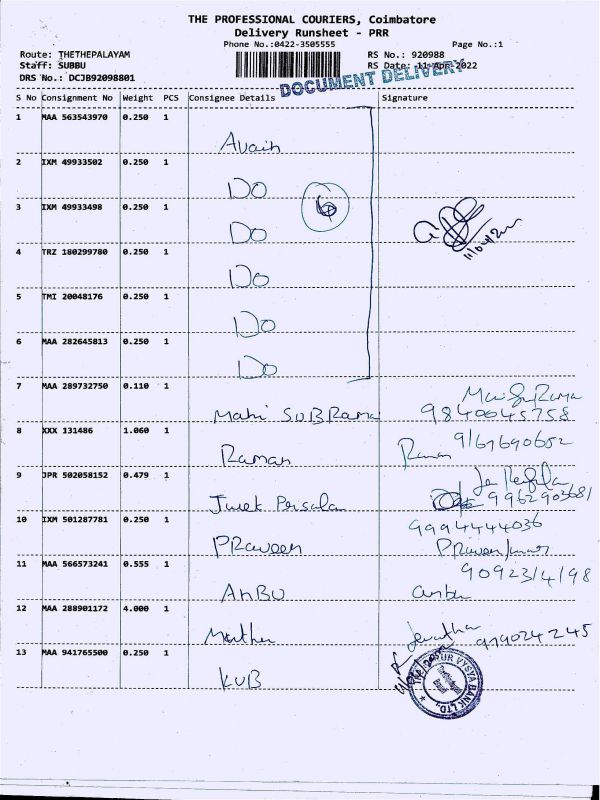 THE PROFESSIONAL COURIERS, Coimbatore
Delivery Runsheet - PRR
Phone No.:0422-3505555 Page No.:1
Route: THETHEPALAYAM RS No.: 920988
Staff: SUBBU RS Date: 11-Apr-2022
DRS No.: DCJB92098801 DOCUMENT DELIVERY
S No Consignment No Weight PCS Consignee Details Signature
1 MAA 563543970 0.250 1
2 IXM 49933502 0.250 1 DO
6
3 IXM 49933498 0.250 1 DO
4 TRZ 180299780 0.250 1 DO
5 TMI 20048176 0.250 1 DO
6 MAA 282645813 0.250 1 DO
7 MAA 289732750 0.110 1 Mahi SUBRama 9840045758
8 XXX 131486 1.060 1 Raman Raman 9167690652
9 JPR 502058152 0.479 1
10 IXM 501287781 0.250 1 PRaveen 9994444036
Praveen Kumar
11 MAA 566573241 0.555 1 AnBU anbu
12 MAA 288901172 4.000 1 9790242245
13 MAA 941765500 0.250 1 KVB
VYSYA BANK LTD.